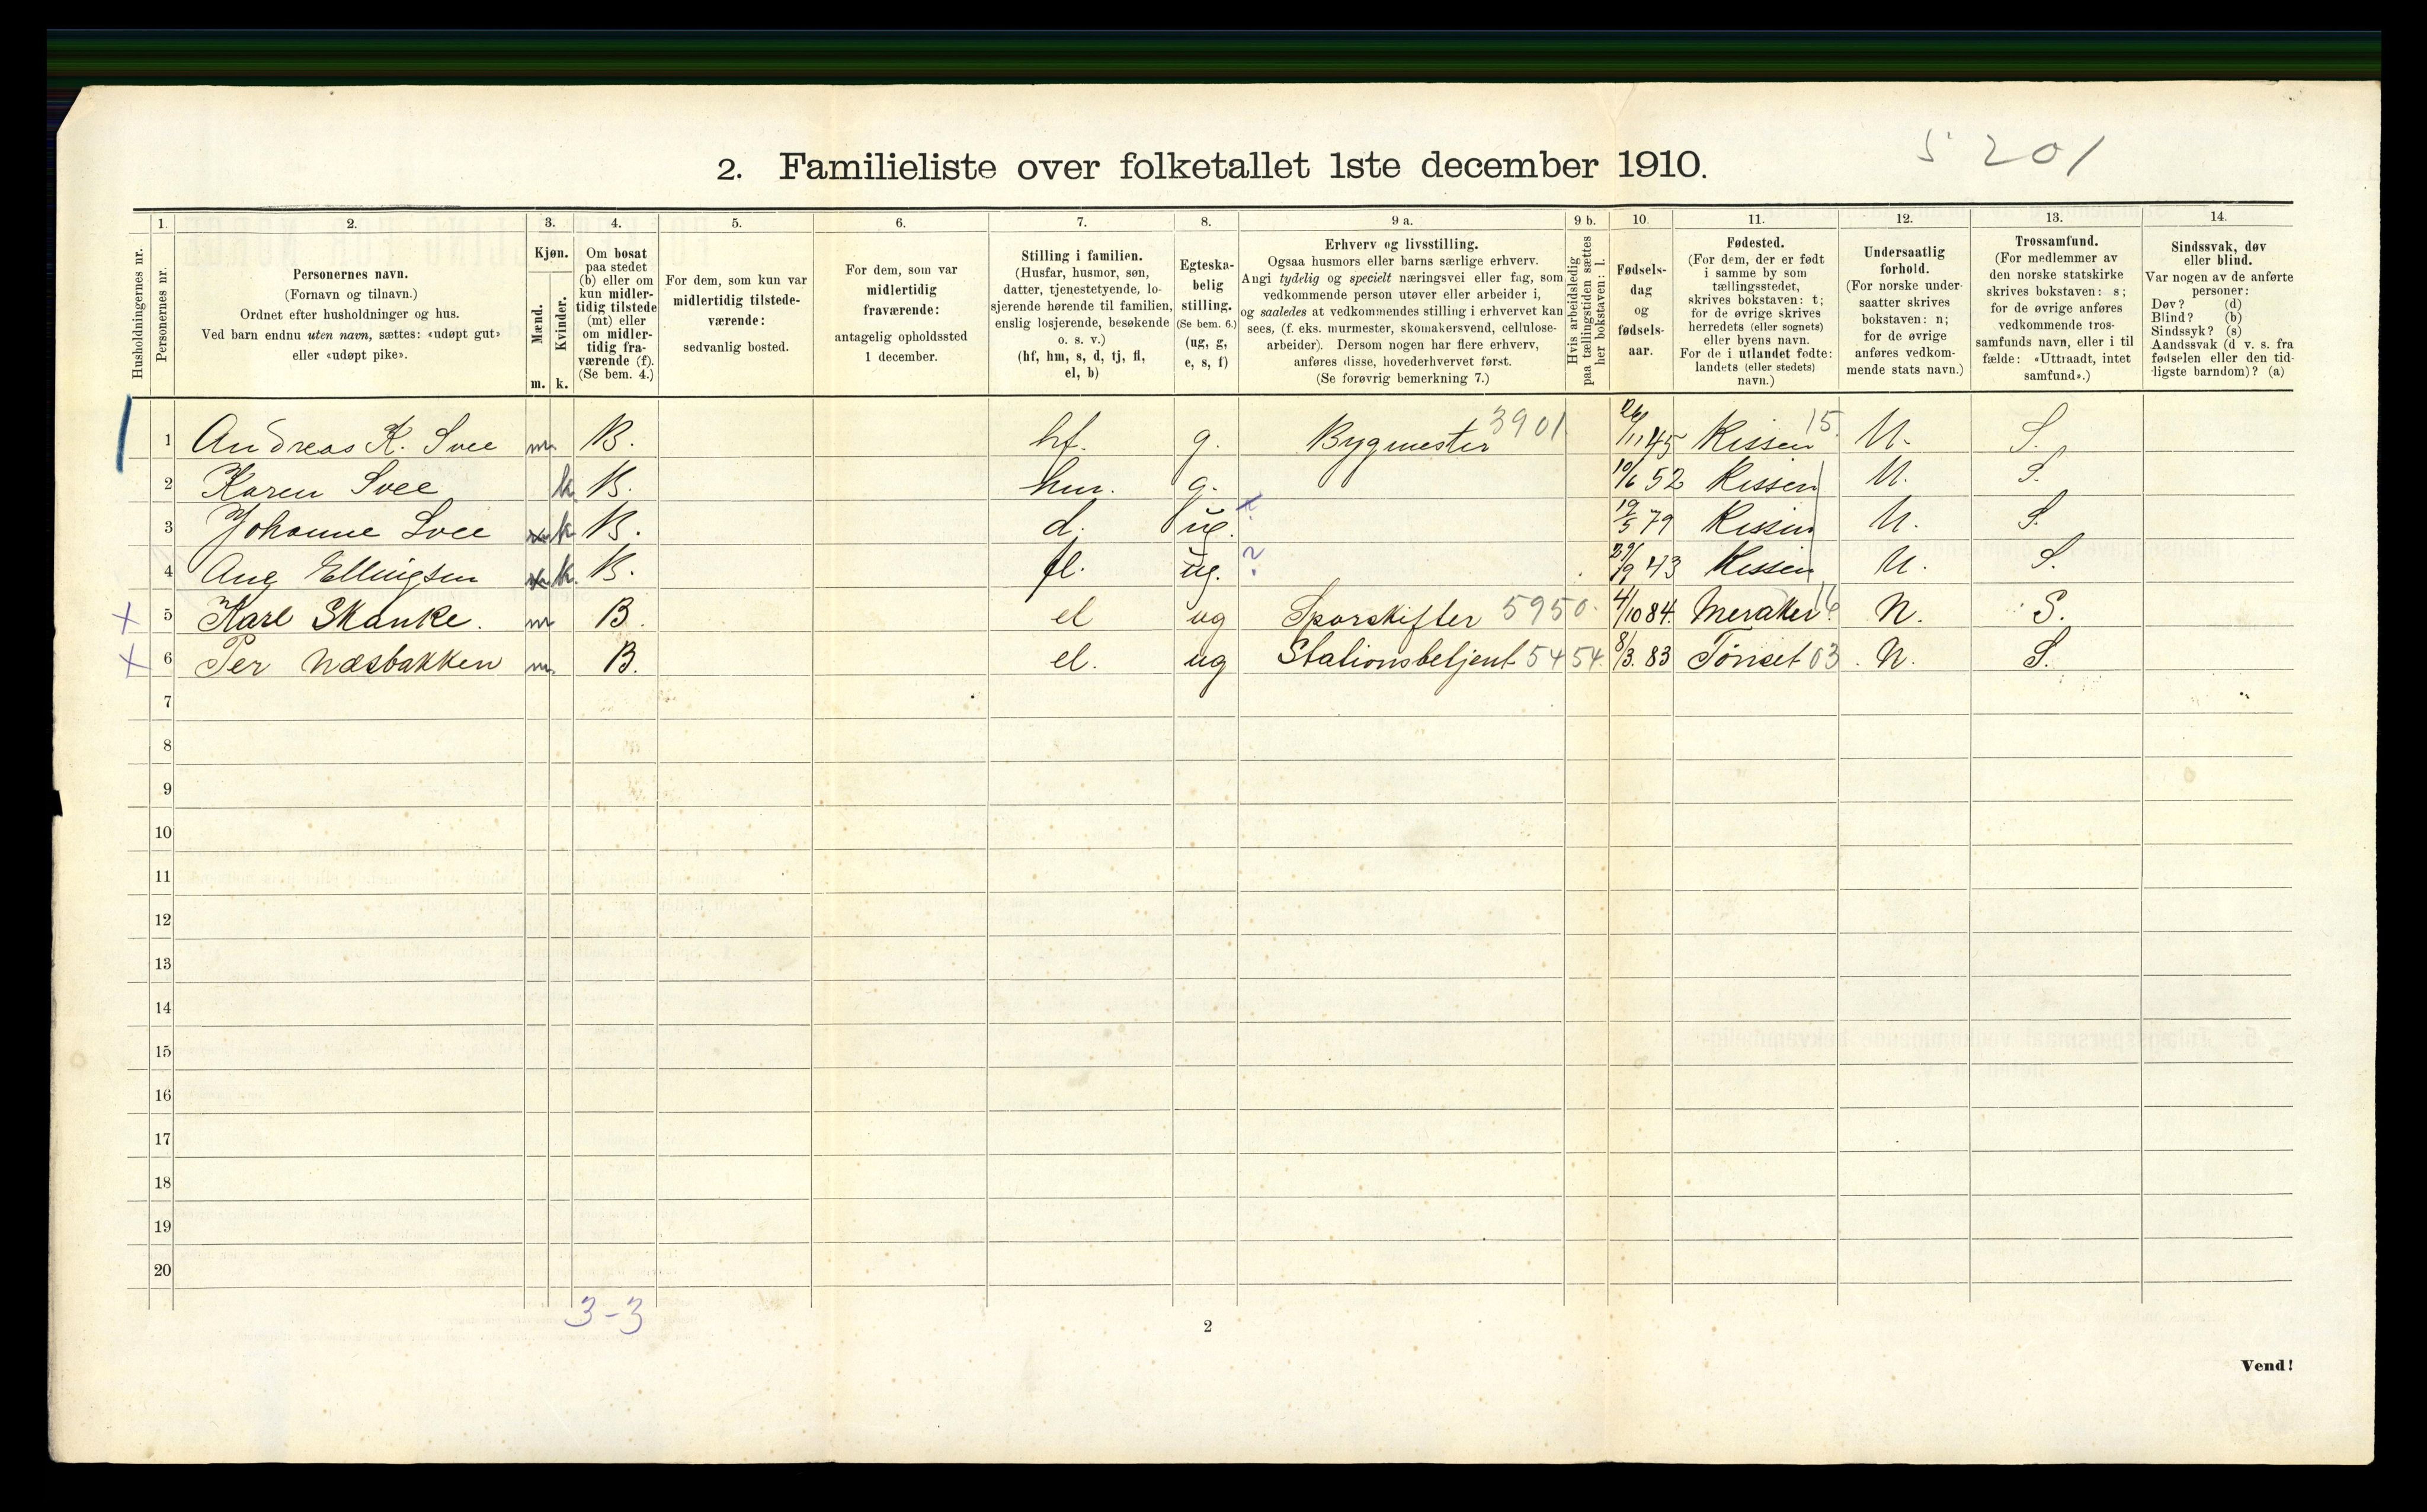 5 201
2. Familieliste over folketallet 1ste december 1910.
Husholdningernes nr.
1. Personernes nr.
2. Personernes navn.
(Fornavn og tilnavn.)
Ordnet efter husholdninger og hus.
Ved barn endnu uten navn, sættes: «udøpt gut»
eller «udøpt pike».
3. Kjøn.
Mænd. m.
Kvinder. k.
4. Om bosat
paa stedet
(b) eller om
kun midler-
tidig tilstede
(mt) eller
om midler-
tidig fra-
værende (f).
(Se bem. 4.)
5. For dem, som kun var
midlertidig tilstede-
værende:
sedvanlig bosted.
6. For dem, som var
midlertidig
fraværende:
antagelig opholdssted
1 december.
7. Stilling i familien.
(Husfar, husmor, søn,
datter, tjenestetyende, lo-
sjerende hørende til familien,
enslig losjerende, besøkende
o. s. v.)
(hf, hm, s, d, tj, fl,
el, b)
8. Egteska-
belig
stilling.
(Se bem. 6.)
(ug, g,
e, s, f)
9 a. Erhverv og livsstilling.
Ogsaa husmors eller barns særlige erhverv.
Angi tydelig og specielt næringsvei eller fag, som
vedkommende person utøver eller arbeider i,
og saaledes at vedkommendes stilling i erhvervet kan
sees, (f. eks. murmester, skomakersvend, cellulose-
arbeider). Dersom nogen har flere erhverv,
anføres disse, hovederhvervet først.
(Se forøvrig bemerkning 7.)
9 b. Hvis arbeidsledig
paa tællingstiden sættes
her bokstaven: l.
10. Fødsels-
dag
og
fødsels-
aar.
11. Fødested.
(For dem, der er født
i samme by som
tællingsstedet,
skrives bokstaven: t;
for de øvrige skrives
herredets (eller sognets)
eller byens navn.
For de i utlandet fødte:
landets (eller stedets)
navn.)
12. Undersaatlig
forhold.
(For norske under-
saatter skrives
bokstaven: n;
for de øvrige
anføres vedkom-
mende stats navn.)
13. Trossamfund.
(For medlemmer av
den norske statskirke
skrives bokstaven: s;
for de øvrige anføres
vedkommende tros-
samfunds navn, eller i til
fælde: «Uttraadt, intet
samfund».)
14. Sindssvak, døv
eller blind.
Var nogen av de anførte
personer:
Døv? (d)
Blind? (b)
Sindssyk? (s)
Aandssvak (d v. s. fra
fødselen eller den tid-
ligste barndom)? (a)
1 Andreas K. Svee m. B. hf. g. Bygmester 3901 26/11 45 Rissen 15. N. S.
2 Karen Svee k B. hm. g. 10/6 52 Rissen N. S.
3 Johanne Svee k B. d. ug. 19/5 79 Rissen N. S.
4 Ellingsen k. B. fl. ug. ? 43 Rissen N. S.
x 5 Karl Skanke. m B. el ug Sporskifter 5950. 4/10 84. Meraker 16 N. S.
x 6 Per Næsbakken m. B. el. ug Stationsbetjent 5454. 8/3. 83 Tönset 03. N. S.
7
8
9
10
11
12
13
14
15
16
17
18
19
20
3-3
2
Vend!